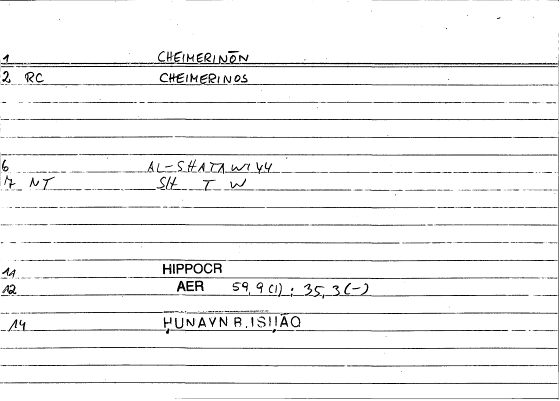 1 CHEIMERINŌN
2 RC CHEIMERINOS
6 AL-SHATAWIYY
7 NT SH T W
11 HIPPOCR
12 AER 59, 9 (1) ; 35, 3 (-)
14 ḤUNAYN B. ISḤĀQ